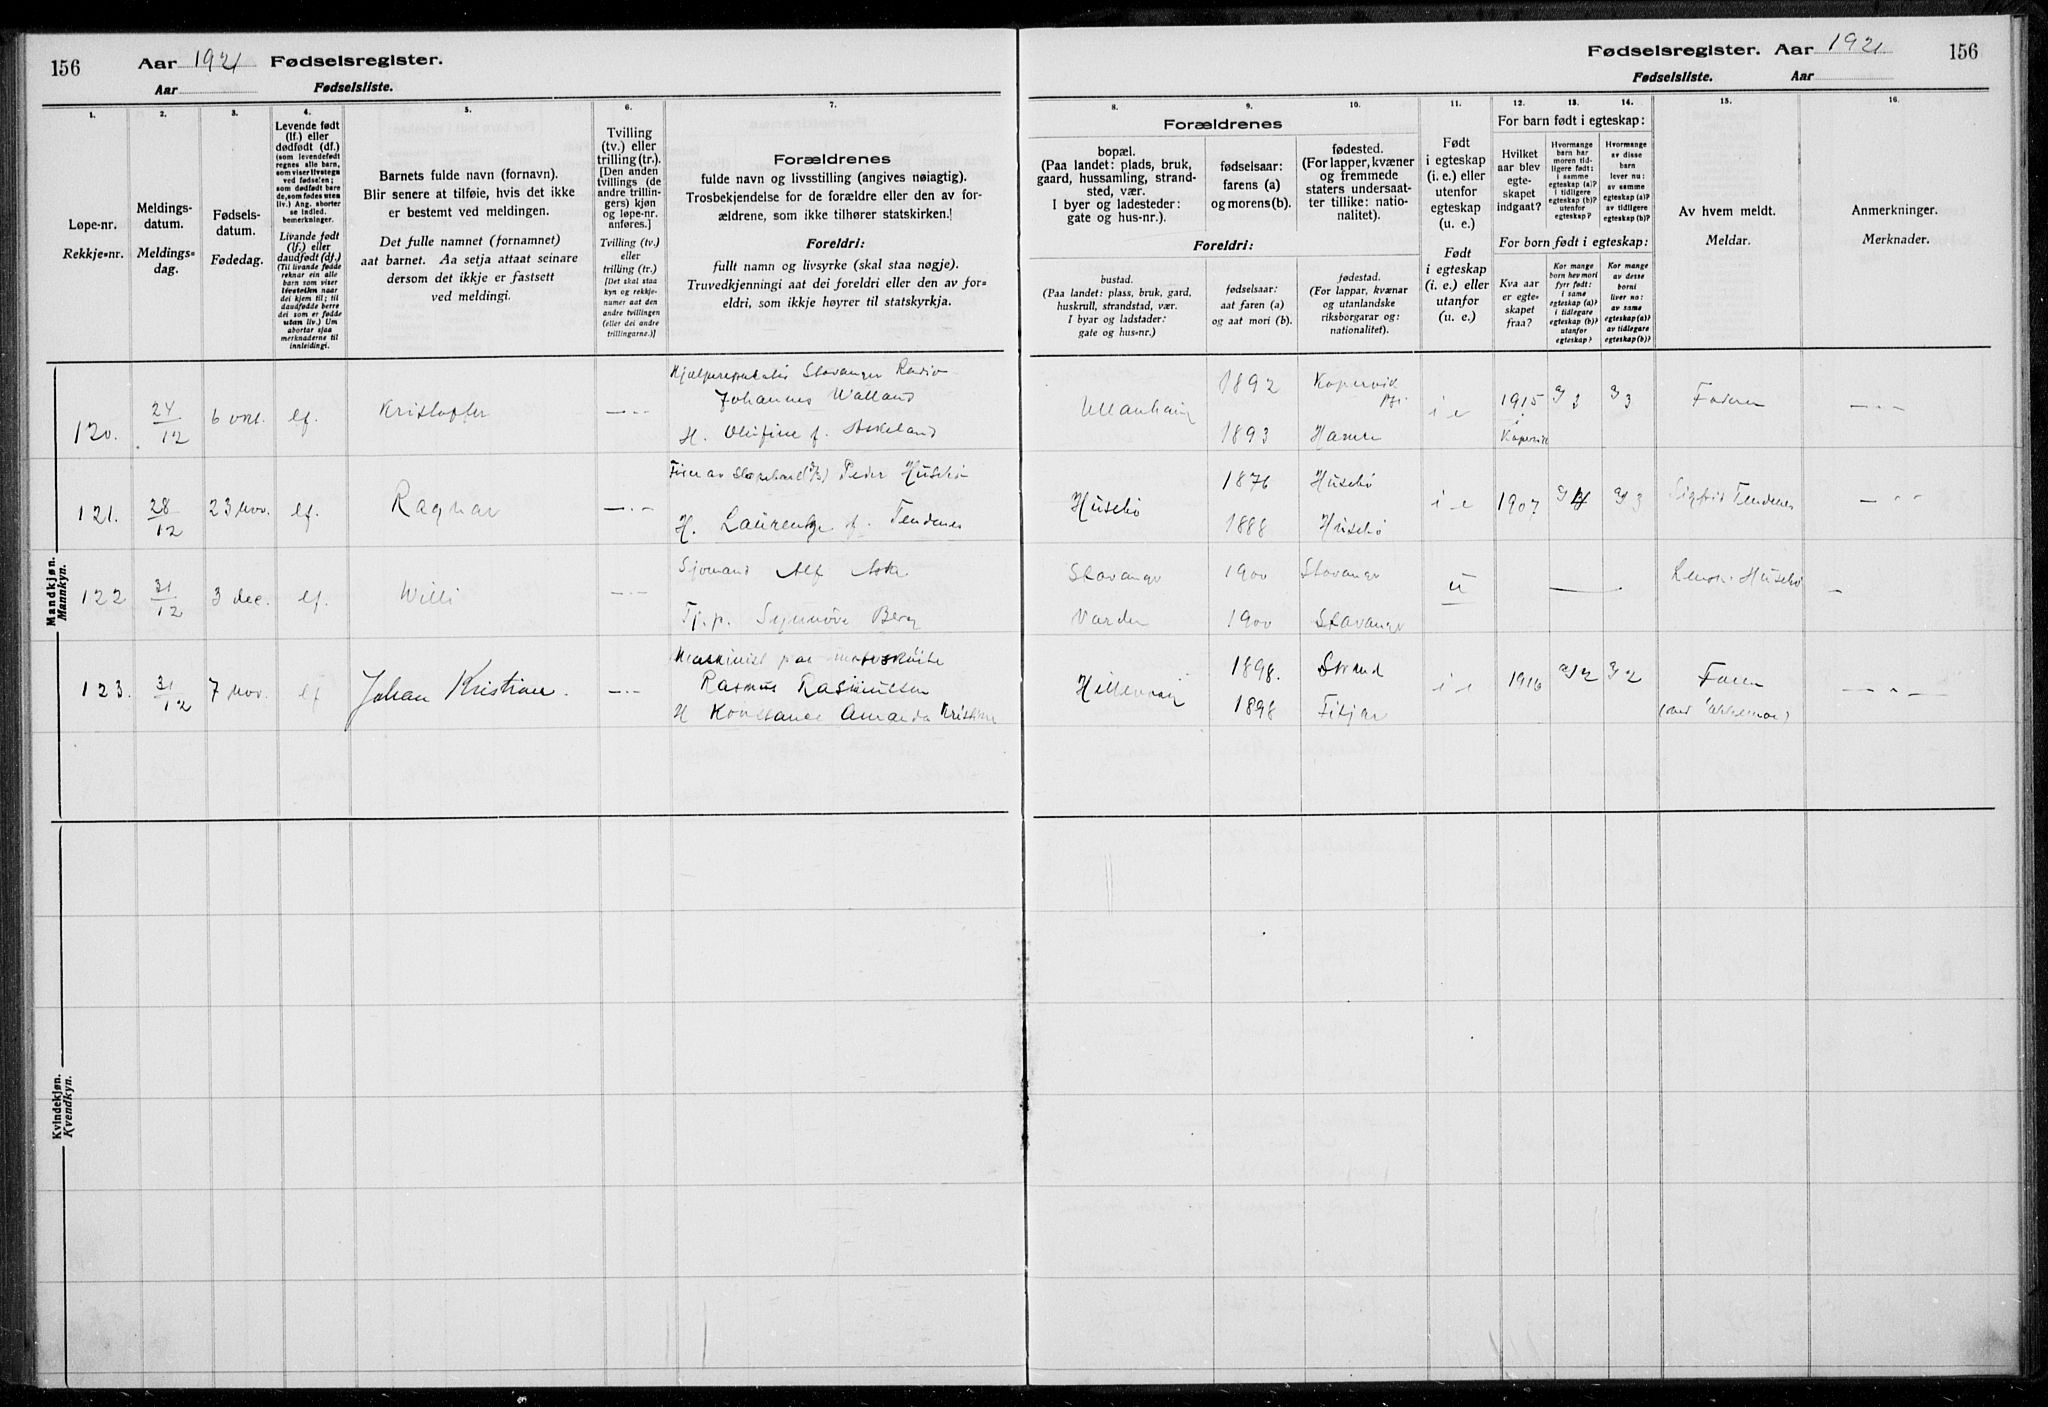 156
Aar 1921 Fødselsregister.
Aar Fødselsliste.
1. 2. 3. 4. 5. 6. 7.
Løpe-nr.
Rekkje=nr.
Meldings-
datum.
Meldings=
dag.
Fødsels-
datum.
Fødedag.
Levende født
(lf.) eller
dødfødt (df.)
(som levendefødt
regnes alle barn,
som viser livstegn
ved fødselen;
som dødfødt bare
de, som fødes uten
liv.) Ang. aborter
se indled.
bemerkninger.
Livande født
(lf.) eller
daudfødt (df.)
(Til livande fødde
reknar ein alle
barn som viser
livsteikn naar
dei kjem til; til
daudfødde berre
dei som er fødde
utan liv.) Um
abortar sjaa
merknaderne til
innleidingi.
Barnets fulde navn (fornavn).
Blir senere at tilføie, hvis det ikke
er bestemt ved meldingen.
Det fulle namnet (fornamnet)
aat barnet. Aa setja attaat seinare
dersom det ikkje er fastsett
ved meldingi.
Tvilling
(tv.) eller
trilling (tr.).
[Den anden
tvillings (de
andre trillin-
gers) kjøn
og løpe-nr.
anføres.]
Tvilling (tv.)
eller
trilling (tr.)
[Det skal staa
kyn og rekkje-
numer aat den
andre tvillingen
(eller dei andre
trillingarne.)]
Forældrenes
fulde navn og livsstilling (angives nøiagtig).
Trosbekjendelse for de forældre eller den av for-
ældrene, som ikke tilhører statskirken.
Foreldri:
fullt namn og livsyrke (skal staa nøgje).
Truvedkjenningi aat dei foreldri eller den av for=
eldri, som ikkje høyrer til statskyrkja.
Mandkjøn.
Mannkyn.
120. 24/12 6 okt. lf. Kristoffer —·—
Stavanger Radio
Johannes Walland
H. Olufine f. Askeland
121. 28/12 23 nov. lf. Ragnar —·—
Peder Husebø
H. Laurentze f. Tendenes
122 31/12 3 dec. lf. Willi —·—
Sjømand Alf Aske
Tj.p. Synnøve Berg
123. 31/12 7 nov. lf Johan Kristian. —·—
Maskinist paa motorskøite
Rasmus Rasmussen
H Konstance Amanda Kristine
Kvindekjøn.
Kvendkyn.
Fødselsregister. Aar 1921 156
Fødselsliste. Aar
8. 9. 10. 11. 12. 13. 14. 15. 16.
Forældrenes
bopæl.
(Paa landet: plads, bruk,
gaard, hussamling, strand-
sted, vær.
I byer og ladesteder:
gate og hus-nr.).
fødselsaar:
farens (a)
og morens (b).
fødested.
(For lapper, kvæner
og fremmede
staters undersaat-
ter tillike: natio-
nalitet).
Foreldri:
bustad.
(Paa landet: plass, bruk, gard,
huskrull, strandstad, vær.
I byar og ladstader:
gate og hus-nr.)
fødselsaar:
aat faren (a)
og aat mori (b).
fødestad.
(For lappar, kvænar
og utanlandske
riksborgarar og:
nationalitet).
Født
i egteskap
(i. e.) eller
utenfor
egteskap
(u. e.)
Født
i egteskap
(i. e.) eller
utanfor
(u. e.)
For barn født i egteskap:
Hvilket
aar blev
egte-
skapet
indgaat?
Hvormange
barn har
moren tid-
ligere født:
i samme
egteskap (a)?
i tidligere
egteskap (b)?
utenfor
egteskap?
Hvormange
av disse
barn
lever nu:
av samme
egteskap (a)?
av tidligere
egteskap (b)?
For born født i egteskap:
Kva aar
er egte-
skapet
fraa?
Kor mange
born hev mori
fyrr født:
i same
egteskap (a)?
i tidlegare
egteskap (b)?
utanfor
egteskap?
Kor mange
av desse
borni
liver no:
av same
egteskap (a)?
av tidlegare
egteskap (b)?
Av hvem meldt.
Meldar.
Anmerkninger.
Merknader.
Ullanhaug 1892 Kopervik i e 1915 Faderen
1893 Hamre Kopervik
Husebø 1876 Husebø i e 1907 Sigfrid Tendenes
1888 Husebø
Stavanger 1900 Stavanger u Husebø
Varden 1900 Stavanger
Hillevaag 1898. Strand i e 1916 Faren
1898 Fitjar